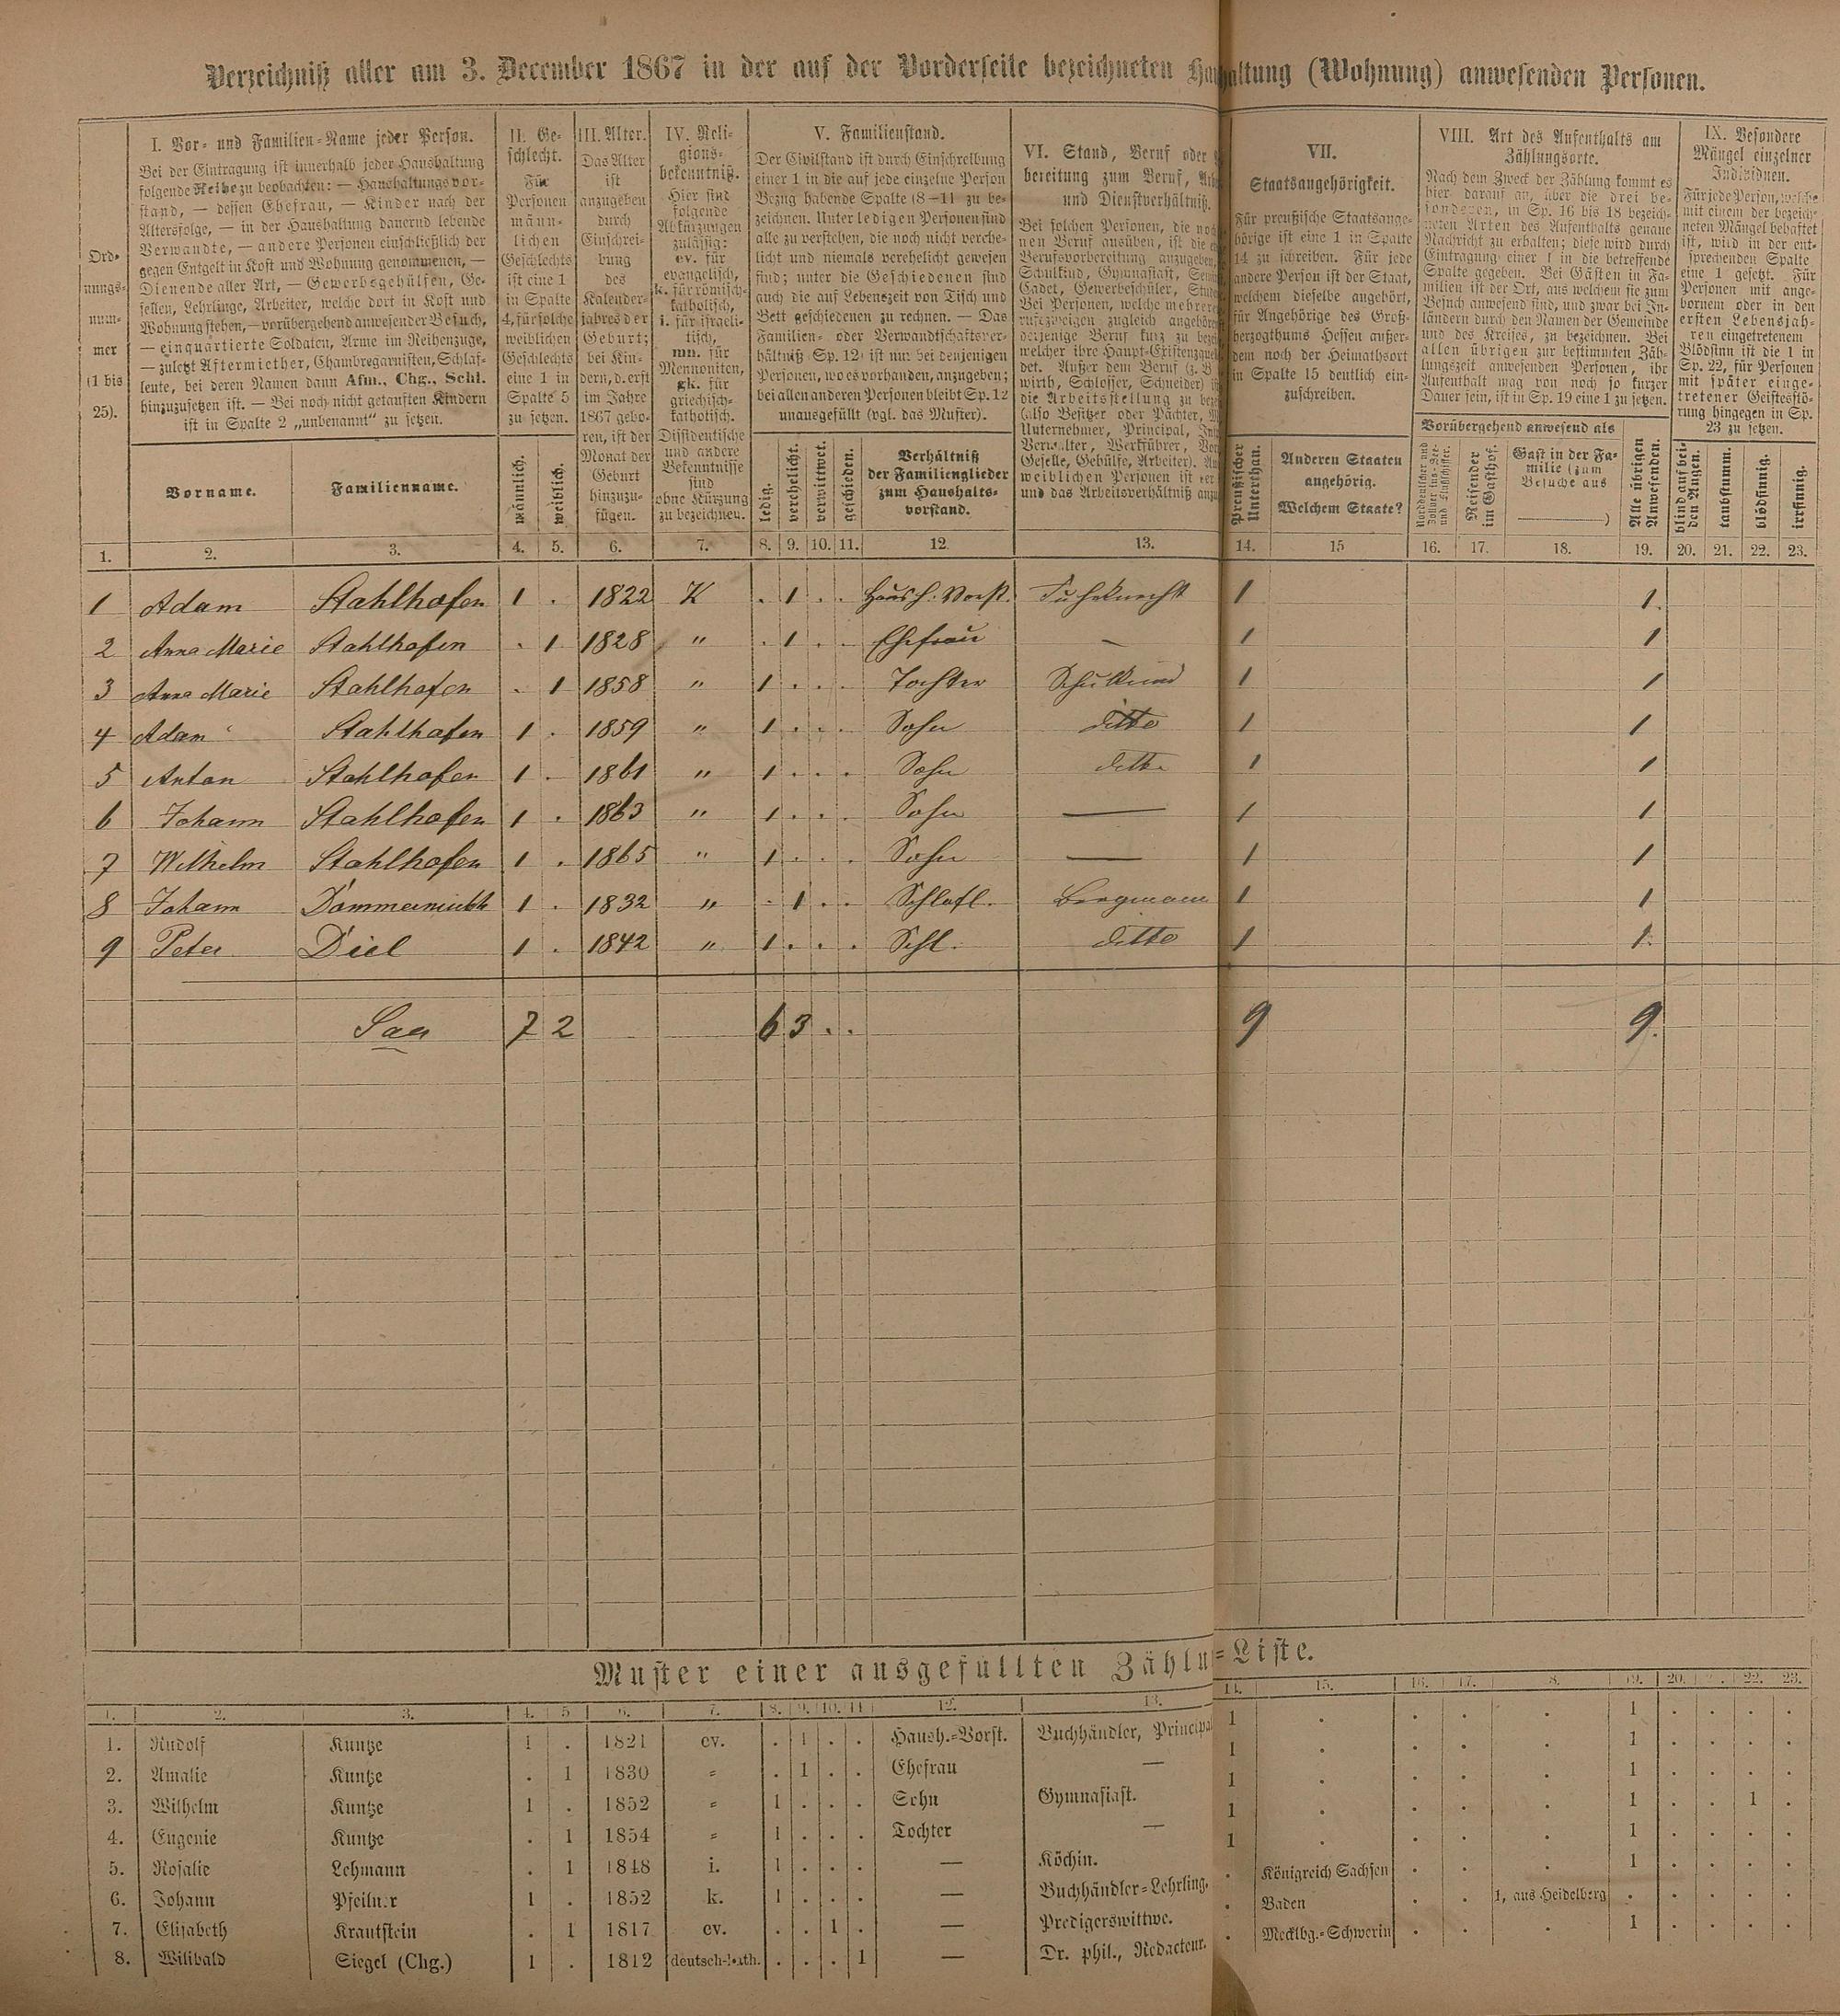 Verzeichniß aller am 3. December 1867 in der auf der Vorderseite bezeichneten Haushaltung (Wohnung) anwesenden Personen.
Ord-
nungs-
num-
mer
(1 bis
25).
I. Vor- und Familien-Name jeder Person.
Bei der Eintragung ist innerhalb jeder Haushaltung
folgende Reihe zu beobachten: — Haushaltungsvor-
stand, — dessen Ehefrau, — Kinder nach der
Altersfolge, — in der Haushaltung dauernd lebende
Verwandte, — andere Personen einschließlich der
gegen Entgelt in Kost und Wohnung genommenen, —
Dienende aller Art, — Gewerbsgehülfen, Ge-
sellen, Lehrlinge, Arbeiter, welche dort in Kost und
Wohnung stehen, — vorübergehend anwesender Besuch,
— einquartierte Soldaten, Arme im Reihenzuge,
— zuletzt Aftermiether, Chambregarnisten, Schlaf-
leute, bei deren Namen dann Afm., Chg., Schl.
hinzuzusetzen ist. — Bei noch nicht getauften Kindern
ist in Spalte 2 „unbenannt" zu setzen.
Vorname.
Familienname.
II. Ge-
schlecht.
Für
Personen
männ-
lichen
Geschlechts
ist eine 1
in Spalte
4, für solche
weiblichen
Geschlechts
eine 1 in
Spalte 5
zu setzen.
männlich.
weiblich.
III. Alter.
Das Alter
ist
anzugeben
durch
Einschrei-
bung
des
Kalender-
jahres der
Geburt;
bei Kin-
dern, d. erst
im Jahre
1867 gebo-
ren, ist der
Monat der
Geburt
hinzuzu-
fügen.
IV. Reli-
gions-
bekenntniß.
Hier sind
folgende
Abkürzungen
zulässig:
ev. für
evangelisch,
k. für römisch-
katholisch,
i. für israeli-
tisch,
mn. für
Mennoniten,
gk. für
griechisch-
katholisch.
Dissidentische
und andere
Bekenntnisse
sind
ohne Kürzung
zu bezeichnen.
V. Familienstand.
Der Civilstand ist durch Einschreibung
einer 1 in die auf jede einzelne Person
Bezug habende Spalte (8—11) zu be-
zeichnen. Unter ledigen Personen sind
alle zu verstehen, die noch nicht verehe-
licht und niemals verehelicht gewesen
sind; unter die Geschiedenen sind
auch die auf Lebenszeit von Tisch und
Bett geschiedenen zu rechnen. — Das
Familien- oder Verwandtschaftsver-
hältniß (Sp. 12) ist nur bei denjenigen
Personen, wo es vorhanden, anzugeben;
bei allen anderen Personen bleibt Sp. 12
unausgefüllt (vgl. das Muster).
ledig.
verehelicht.
verwittwet.
geschieden.
Verhältniß
der Familienglieder
zum Haushalts-
vorstand.
VI. Stand, Beruf oder
bereitung zum Beruf,
und Dienstverhältniß.
Bei solchen Personen, die noch
nen Beruf ausüben, ist die
Berufsvorbereitung anzugeben,
Schulkind, Gymnasiast,
Cadet, Gewerbeschüler,
Bei Personen, welche mehreren
rufszweigen zugleich angehören
derjenige Beruf kurz zu
welcher ihre Haupt-Existenzquelle
det. Außer dem Beruf (z. B.
wirth, Schlosser, Schneider)
die Arbeitsstellung zu
(also Besitzer oder Pächter,
Unternehmer, Principal,
Verwalter, Werkführer,
Geselle, Gehülfe, Arbeiter).
weiblichen Personen ist der
und das Arbeitsverhältniß
VII.
Staatsangehörigkeit.
Für preußische Staatsange-
hörige ist eine 1 in Spalte
14 zu schreiben. Für jede
andere Person ist der Staat,
welchem dieselbe angehört,
für Angehörige des Groß-
herzogthums Hessen außer-
dem noch der Heimathsort
in Spalte 15 deutlich ein-
zuschreiben.
Preußischer
Unterthan.
Anderen Staaten
angehörig.
Welchem Staate?
VIII. Art des Aufenthalts am
Zählungsorte.
Nach dem Zweck der Zählung kommt es
hier darauf an, über die drei be-
sonderen, in Sp. 16 bis 18 bezeich-
neten Arten des Aufenthalts genaue
Nachricht zu erhalten; diese wird durch
Eintragung einer 1 in die betreffende
Spalte gegeben. Bei Gästen in Fa-
milien ist der Ort, aus welchem sie zum
Besuch anwesend sind, und zwar bei In-
ländern durch den Namen der Gemeinde
und des Kreises, zu bezeichnen. Bei
allen übrigen zur bestimmten Zäh-
lungszeit anwesenden Personen, ihr
Aufenthalt mag von noch so kurzer
Dauer sein, ist in Sp. 19 eine 1 zu setzen.
Vorübergehend anwesend als
Reisender
im Gasthof.
Gast in der Fa-
milie (zum
Besuche aus
)
Alle übrigen
Anwesenden.
IX. Besondere
Mängel einzelner
Individuen.
Für jede Person, welche
mit einem der bezeich-
neten Mängel behaftet
ist, wird in der ent-
sprechenden Spalte
eine 1 gesetzt. Für
Personen mit ange-
bornem oder in den
ersten Lebensjah-
ren eingetretenem
Blödsinn ist die 1 in
Sp. 22, für Personen
mit später einge-
tretener Geistesstö-
rung hingegen in Sp.
23 zu setzen.
blind auf bei-
den Augen.
taubstumm.
blödsinnig.
irrsinnig.
1. 2. 3. 4. 5. 6. 7. 8. 9. 10. 11. 12. 13. 14. 15 16. 17. 18. 19. 20. 21. 22. 23.
1 Adam Stahlhofen 1 . 1822 K . 1 . . Haush. Vorst. Fuhrknecht 1 1.
2 Anna Marie Stahlhofen . 1 1828 " . 1 . . Ehefrau — 1 1
3 Anna Marie Stahlhofen . 1 1858 " 1 . . . Tochter Schulkind 1 1
4 Adam Stahlhofen 1 . 1859 " 1 . . . Sohn ditto 1 1
5 Anton Stahlhofen 1 . 1861 " 1 . . . Sohn ditto 1 1
6 Johann Stahlhofen 1 . 1863 " 1 . . . Sohn — 1 1
7 Wilhelm Stahlhofen 1 . 1865 " 1 . . . Sohn — 1 1
8 Johann 1 . 1832 " . 1 . . Schlafl. Bergmann 1 1
9 Peter Diel 1 . 1842 " 1 . . . Schl. ditto 1 1.
7 2 6 3 . . 9 9.
Muster einer ausgefüllten Zählu=Liste.
1. 2. 3. 4. 5 6. 7. 8. 9. 10. 11 12. 13. 14. 15. 16. 17. 8. 19. 20. 22. 23.
1. Rudolf Kuntze 1 . 1821 ev. . 1 . . Haush.-Vorst. Buchhändler, Principal 1 . . . . 1 . . . .
2. Amalie Kuntze . 1 1830 = . 1 . . Ehefrau — 1 . . . . 1 . . . .
3. Wilhelm Kuntze 1 . 1852 = 1 . . . Sohn Gymnasiast. 1 . . . . 1 . . . .
4. Eugenie Kuntze . 1 1854 = 1 . . . Tochter — 1 . . . . 1 . . 1 .
5. Rosalie Lehmann . 1 1848 i. 1 . . . — Köchin. 1 . . . . 1 . . . .
6. Johann Pfeilner 1 . 1852 k. 1 . . . — Buchhändler-Lehrling. . Königreich Sachsen . . . 1 . . . .
7. Elisabeth Krautstein . 1 1817 ev. . . 1 . — Predigerswittwe. . Baden . . 1, aus Heidelberg . . . . .
8. Wilibald Siegel (Chg.) 1 . 1812 deutsch-kath. . . . 1 — Dr. phil., Redacteur. . Mecklbg.-Schwerin . . . 1 . . . .